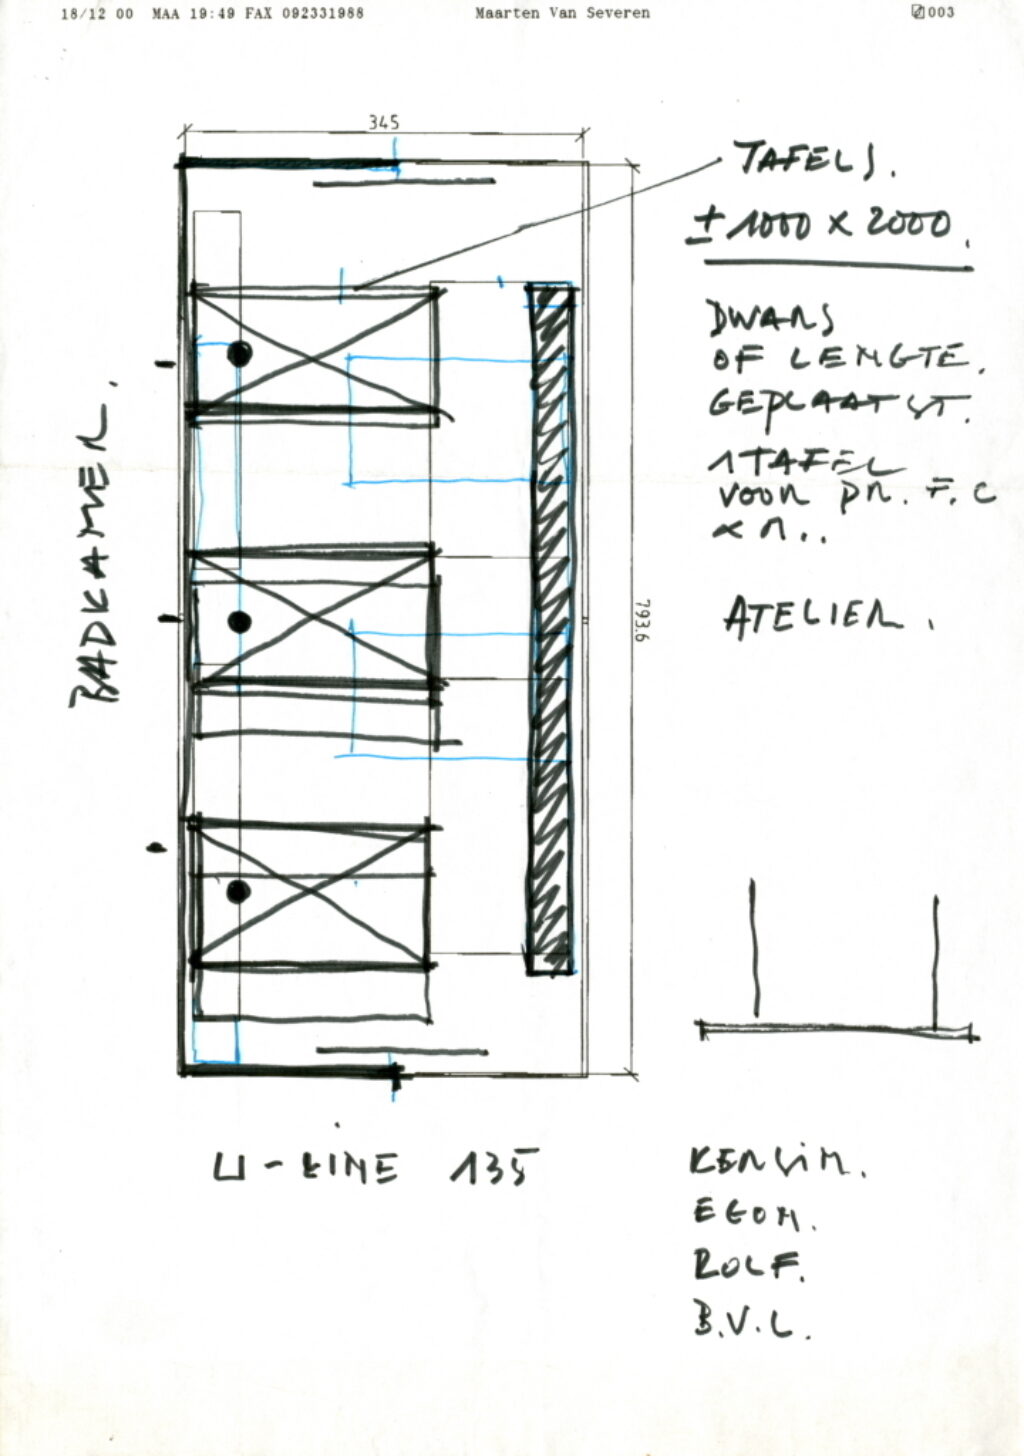 18/12 00 MAA 19:49 FAX 092331988 Maarten Van Severen 003
345
TAFELS.
± 1000 x 2000.
DWARS
OF LENGTE.
GEPLAATST.
1 TAFEL
VOOR DR. F. C
793.6
ATELIER.
BADKAMER.
U-LINE 135
EGON.
ROLF.
B.V.L.